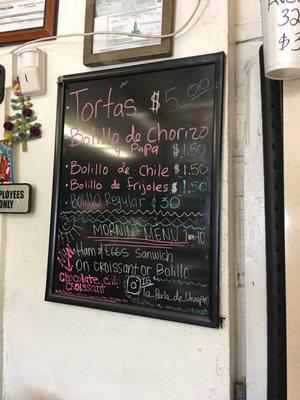 Tortas $5.00
Bolillo de Chorizo
y Papa $1.50
Bolillo de Chile $1.50
Bolillo de frijoles $1.50
Bolillo Regular ¢30
MORNING MENU 7am-10
New
Ham & EGGS Sanwich
On CROISSANT or Bolillo
Chocolate
Croissant
IG
la Perla de
EMPLOYEES
ONLY
32
$3